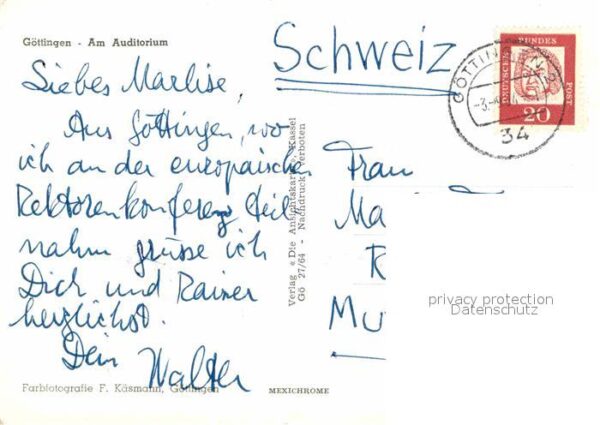 Göttingen - Am Auditorium
Schweiz
Liebes Marlise,
Aus Göttingen, wo
ich an der europäischen
Rektorenkonferenz teil-
nahm grüsse ich
Dich und Rainer
herzlichst.
Dein Walter
Frau
Ma
R
Mu
Verlag «Die Ansichtskarte», Kassel
Gö 27/64 - Nachdruck verboten
Farbfotografie F. Käsmann, Göttingen
MEXICHROME
DEUTSCHE
BUNDES
POST
20
GÖTTIN
-3.
34
privacy protection
Datenschutz